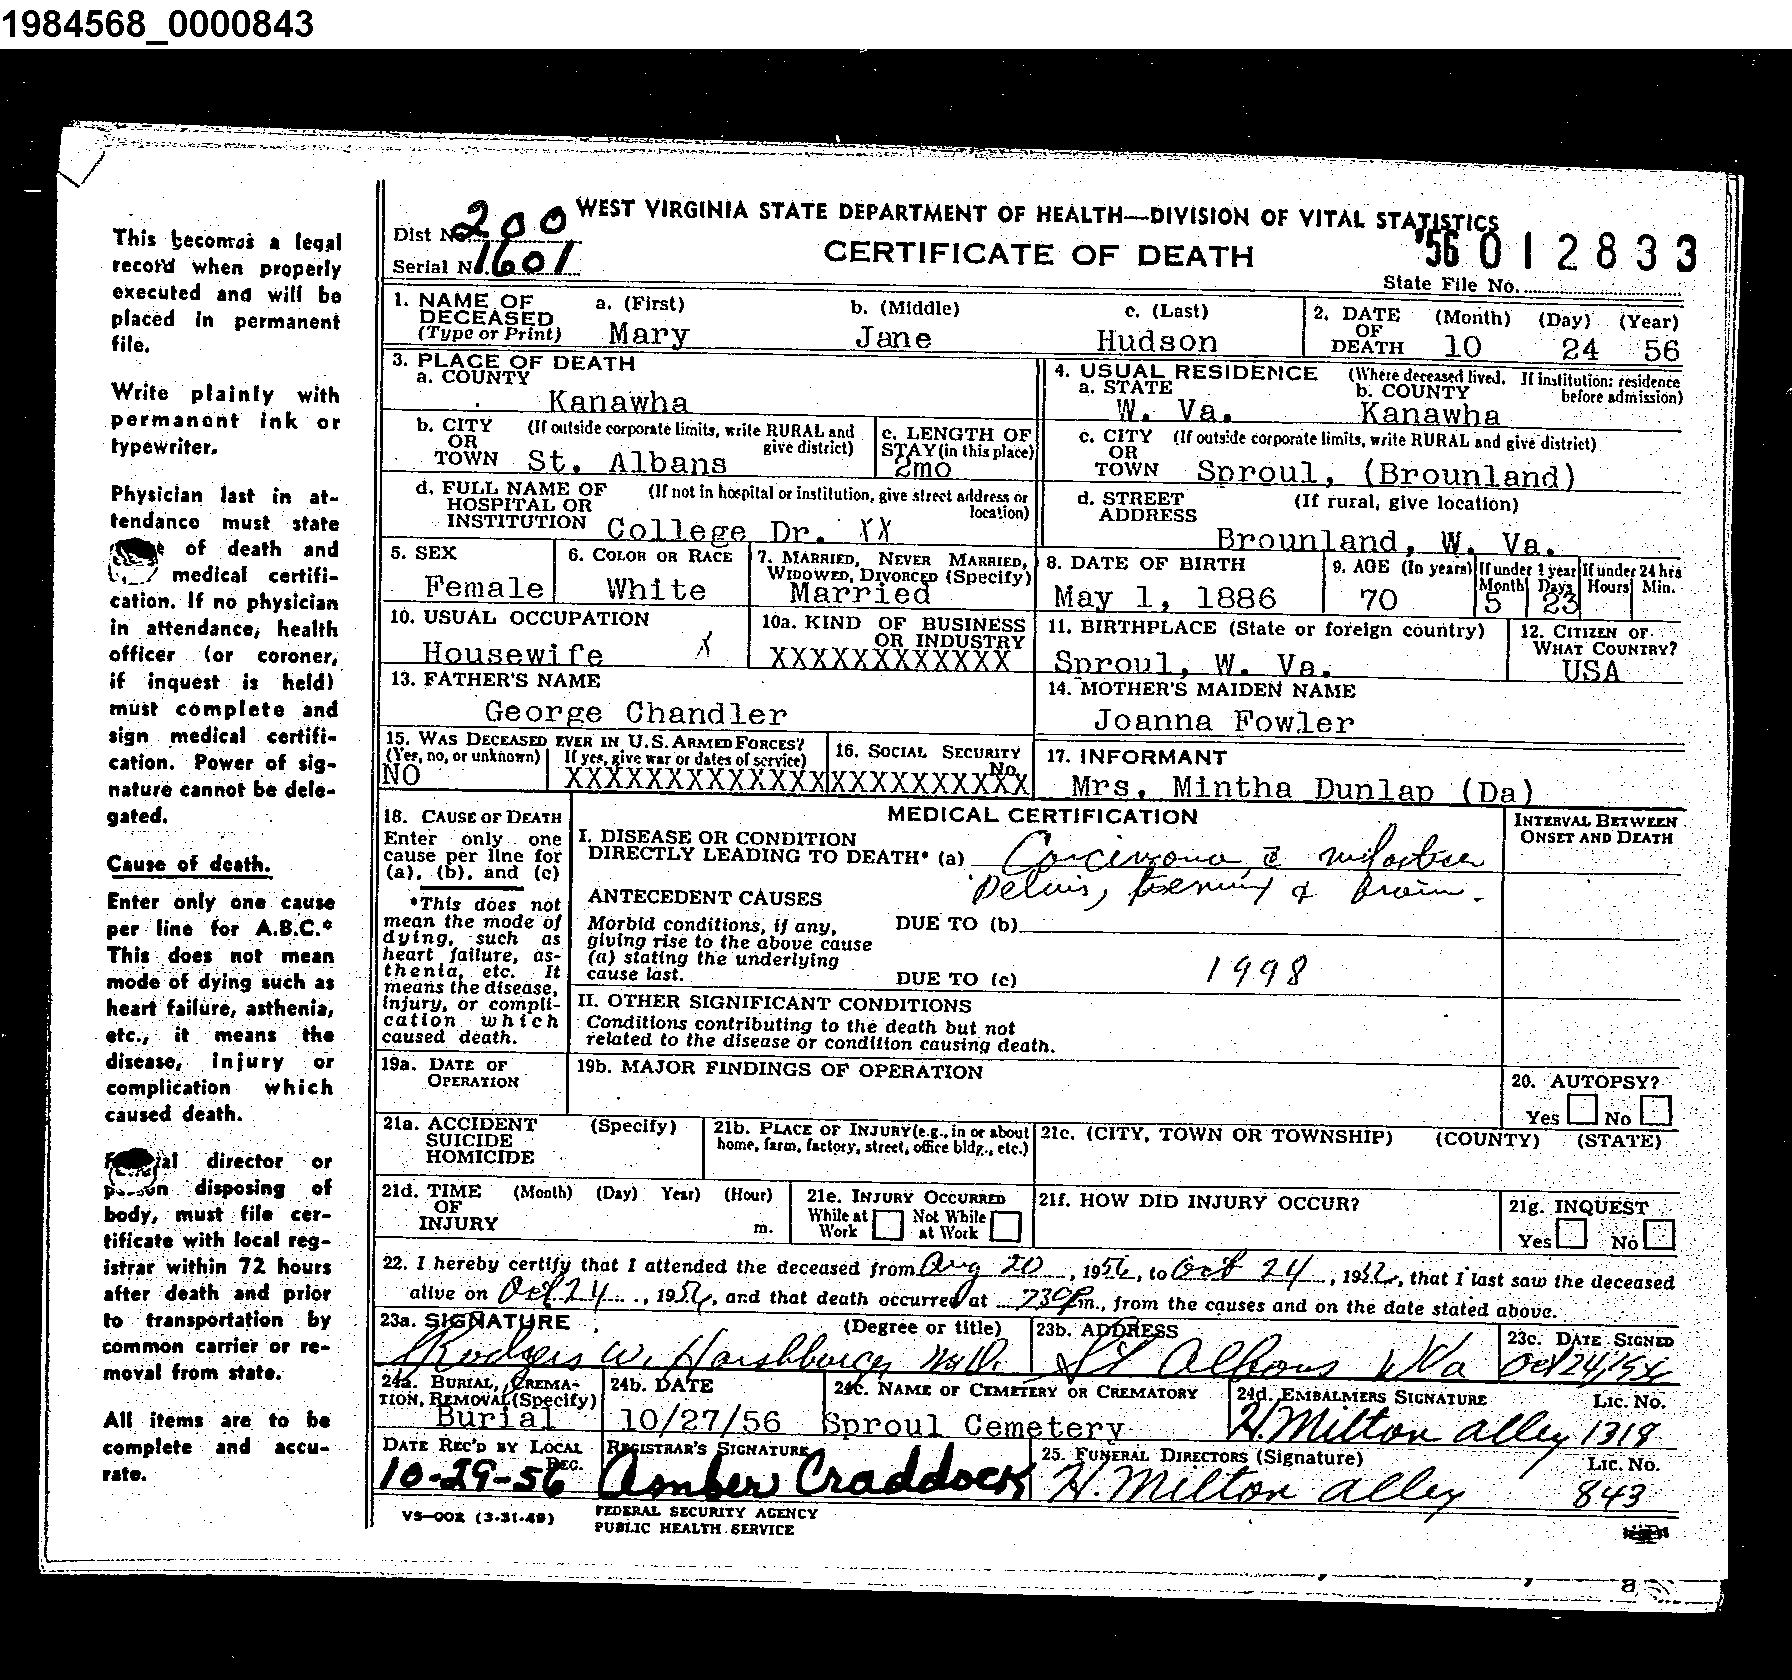 1984568_0000843
WEST VIRGINIA STATE DEPARTMENT OF HEALTH—DIVISION OF VITAL STATISTICS
CERTIFICATE OF DEATH
Dist No. 200
Serial No. 1601
'56 012833
State File No.
1. NAME OF DECEASED (Type or Print) a. (First) b. (Middle) c. (Last)
Mary Jane Hudson
2. DATE OF DEATH (Month) (Day) (Year)
10 24 56
3. PLACE OF DEATH
a. COUNTY
Kanawha
4. USUAL RESIDENCE (Where deceased lived. If institution: residence before admission)
a. STATE W. Va. b. COUNTY Kanawha
b. CITY OR TOWN (If outside corporate limits, write RURAL and give district)
St. Albans
c. LENGTH OF STAY (in this place)
2mo
c. CITY OR TOWN (If outside corporate limits, write RURAL and give district)
Sproul, (Brounland)
d. FULL NAME OF HOSPITAL OR INSTITUTION (If not in hospital or institution, give street address or location)
College Dr. XX
d. STREET ADDRESS (If rural, give location)
Brounland, W. Va.
5. SEX
Female
6. COLOR OR RACE
White
7. MARRIED, NEVER MARRIED, WIDOWED, DIVORCED (Specify)
Married
8. DATE OF BIRTH
May 1, 1886
9. AGE (In years) If under 1 year Month Days If under 24 hrs Hours Min.
70 5 23
10. USUAL OCCUPATION
Housewife X
10a. KIND OF BUSINESS OR INDUSTRY
XXXXXXXXXXXX
11. BIRTHPLACE (State or foreign country)
Sproul, W. Va.
12. CITIZEN OF WHAT COUNTRY?
USA
13. FATHER'S NAME
George Chandler
14. MOTHER'S MAIDEN NAME
Joanna Fowler
15. WAS DECEASED EVER IN U.S. ARMED FORCES?
(Yes, no, or unknown) If yes, give war or dates of service)
NO XXXXXXXXXXXXX
16. SOCIAL SECURITY No.
XXXXXXXXXX
17. INFORMANT
Mrs. Mintha Dunlap (Da)
18. CAUSE OF DEATH
Enter only one cause per line for (a), (b), and (c)
*This does not mean the mode of dying, such as heart failure, asthenia, etc. It means the disease, injury, or complication which caused death.
MEDICAL CERTIFICATION
INTERVAL BETWEEN ONSET AND DEATH
I. DISEASE OR CONDITION
DIRECTLY LEADING TO DEATH* (a) Carcinoma
Pelvis, & brain.
ANTECEDENT CAUSES
Morbid conditions, if any, giving rise to the above cause (a) stating the underlying cause last.
DUE TO (b)
DUE TO (c)
1998
II. OTHER SIGNIFICANT CONDITIONS
Conditions contributing to the death but not
related to the disease or condition causing death.
19a. DATE OF OPERATION
19b. MAJOR FINDINGS OF OPERATION
20. AUTOPSY?
Yes No
21a. ACCIDENT SUICIDE HOMICIDE (Specify)
21b. PLACE OF INJURY (e.g., in or about home, farm, factory, street, office bldg., etc.)
21c. (CITY, TOWN OR TOWNSHIP) (COUNTY) (STATE)
21d. TIME OF INJURY (Month) (Day) Year) (Hour) m.
21e. INJURY OCCURRED
While at Work Not While at Work
21f. HOW DID INJURY OCCUR?
21g. INQUEST
Yes No
22. I hereby certify that I attended the deceased from Aug 20, 1956, to Oct 24, 1956, that I last saw the deceased
alive on Oct 24, 1956, and that death occurred at 730 P m., from the causes and on the date stated above.
23a. SIGNATURE (Degree or title)
Rodgers W. Harshbarger M.D.
23b. ADDRESS
St Albans W Va
23c. DATE SIGNED
Oct 24, 1956
24a. BURIAL, CREMATION, REMOVAL (Specify)
Burial
24b. DATE
10/27/56
24c. NAME OF CEMETERY OR CREMATORY
Sproul Cemetery
24d. EMBALMERS SIGNATURE Lic. No.
H. Milton Alley 1318
DATE REC'D BY LOCAL REG.
10-29-56
REGISTRAR'S SIGNATURE
Amber Craddock
25. FUNERAL DIRECTORS (Signature) Lic. No.
H. Milton Alley 843
VS-002 (3-31-49)
FEDERAL SECURITY AGENCY
PUBLIC HEALTH SERVICE
This becomes a legal
record when properly
executed and will be
placed in permanent
file.
Write plainly with
permanent ink or
typewriter.
Physician last in at-
tendance must state
of death and
medical certifi-
cation. If no physician
in attendance, health
officer (or coroner,
if inquest is held)
must complete and
sign medical certifi-
cation. Power of sig-
nature cannot be dele-
gated.
Cause of death.
Enter only one cause
per line for A.B.C.*
This does not mean
mode of dying such as
heart failure, asthenia,
etc., it means the
disease, injury or
complication which
caused death.
director or
person disposing of
body, must file cer-
tificate with local reg-
istrar within 72 hours
after death and prior
to transportation by
common carrier or re-
moval from state.
All items are to be
complete and accu-
rate.